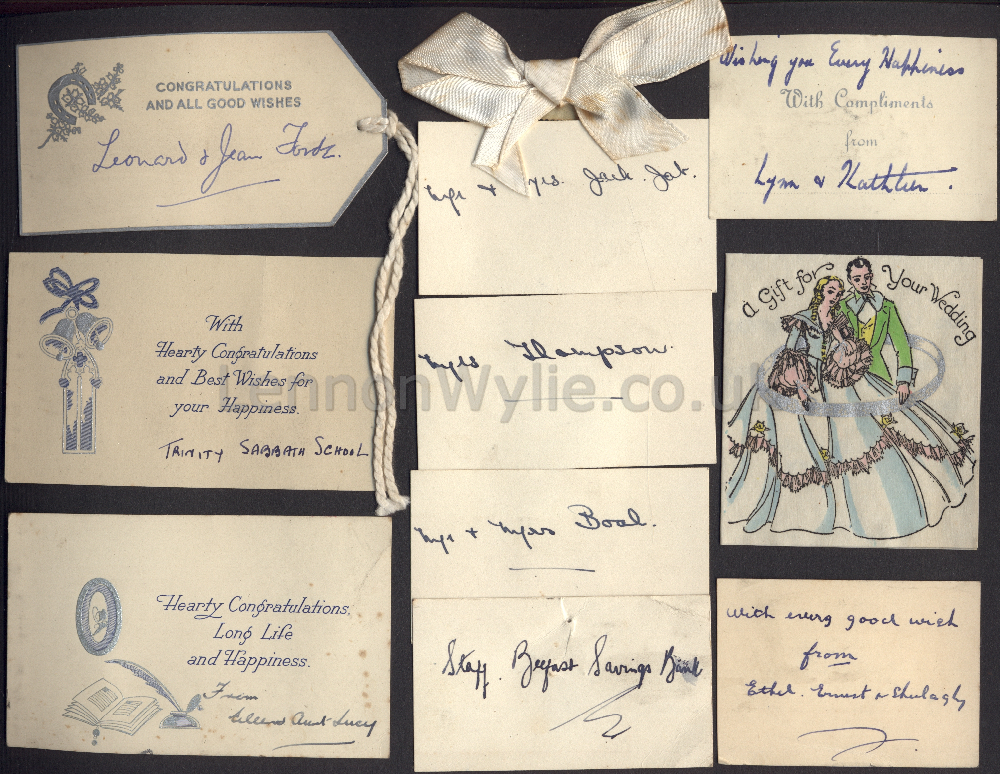 CONGRATULATIONS
AND ALL GOOD WISHES
Leonard & Jean
With
Hearty Congratulations
and Best Wishes for
your Happiness.
TRINITY SABBATH SCHOOL
Hearty Congratulations,
Long Life
and Happiness.
From
Aunt Lucy
Mr + Mrs. Jack
Mrs Thompson.
Mr + Mrs Boal.
Staff. Belfast Savings Bank
Wishing you Every Happiness
With Compliments
from
Lynn & Kathleen.
A Gift for Your Wedding
With every good wish
from
Ethel. Ernest &
LennonWylie.co.uk